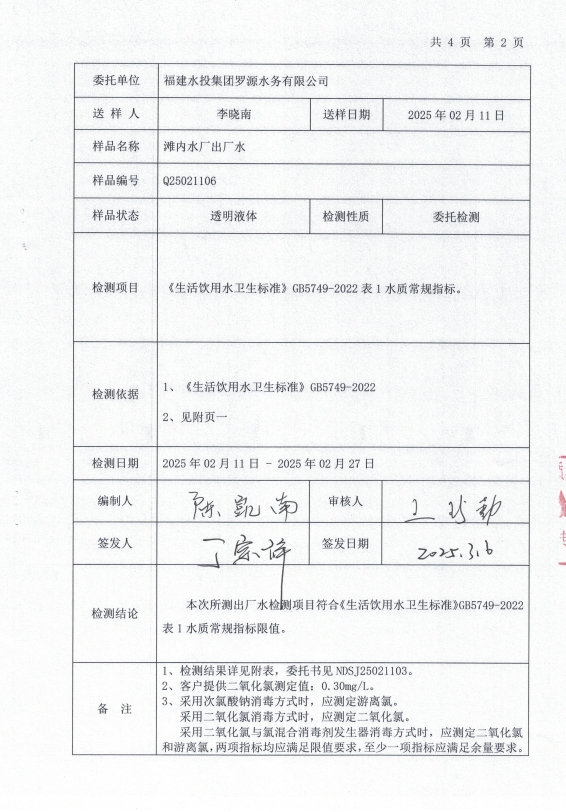 共 4 页 第 2 页
委托单位 福建水投集团罗源水务有限公司
送 样 人 李晓南 送样日期 2025 年 02 月 11 日
样品名称 滩内水厂出厂水
样品编号 Q25021106
样品状态 透明液体 检测性质 委托检测
检测项目 《生活饮用水卫生标准》GB5749-2022 表 1 水质常规指标。
检测依据 1、《生活饮用水卫生标准》GB5749-2022
2、见附页一
检测日期 2025 年 02 月 11 日 - 2025 年 02 月 27 日
编制人 陈凯南 审核人
签发人 丁宗祥 签发日期 2025.3.6
检测结论 本次所测出厂水检测项目符合《生活饮用水卫生标准》GB5749-2022
表 1 水质常规指标限值。
备 注 1、检测结果详见附表，委托书见 NDSJ25021103。
2、客户提供二氧化氯测定值：0.30mg/L。
3、采用次氯酸钠消毒方式时，应测定游离氯。
采用二氧化氯消毒方式时，应测定二氧化氯。
采用二氧化氯与氯混合消毒剂发生器消毒方式时，应测定二氧化氯
和游离氯，两项指标均应满足限值要求，至少一项指标应满足余量要求。